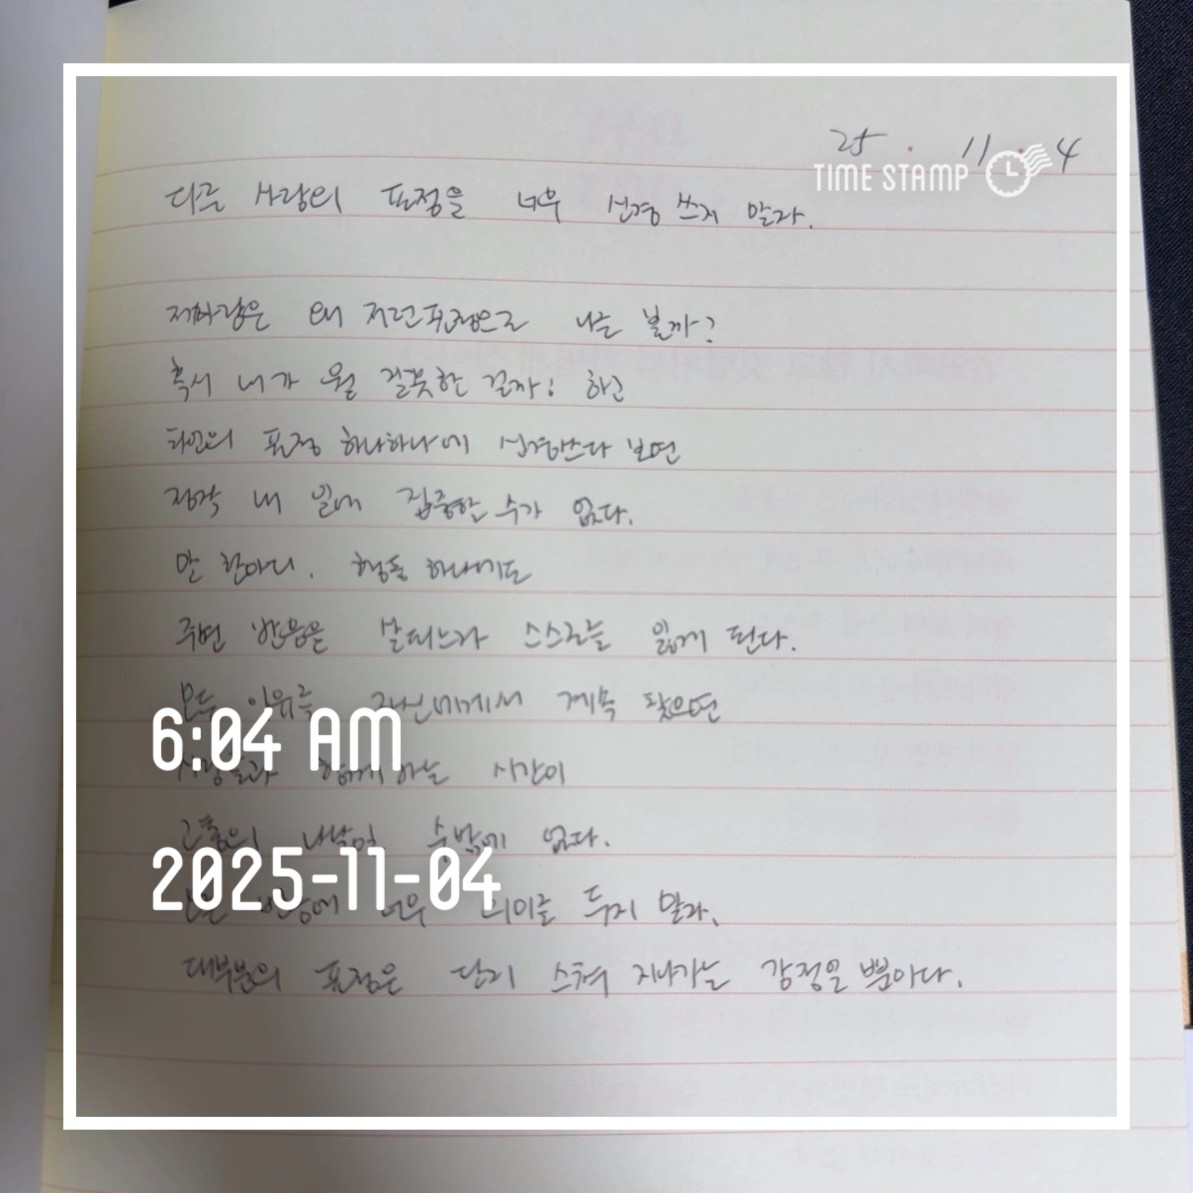 25 . 11 . 4
TIME STAMP
다른 사람의 표정을 너무 신경 쓰지 말라.
저사람은 왜 저런표정으로 나를 볼까?
혹시 내가 뭘 잘못한 걸까? 하고
타인의 표정 하나하나에 신경쓰다 보면
정작 내 일에 집중할 수가 없다.
말 한마디, 행동 하나에도
주변 반응을 살피느라 스스로를 잃게 된다.
모든 이유를 자신에게서 계속 찾으면
6:04 AM
사람들과 함께하는 시간이
고통의 나날일 수밖에 없다.
2025-11-04
반응에 너무 의미를 두지 말라.
대부분의 표정은 단지 스쳐 지나가는 감정일 뿐이다.